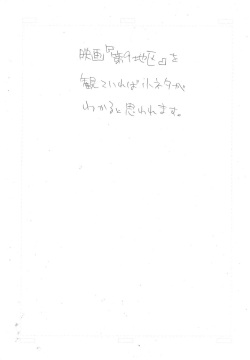 映画『第9地区』を
観ていれば小ネタが
わかると思われます。